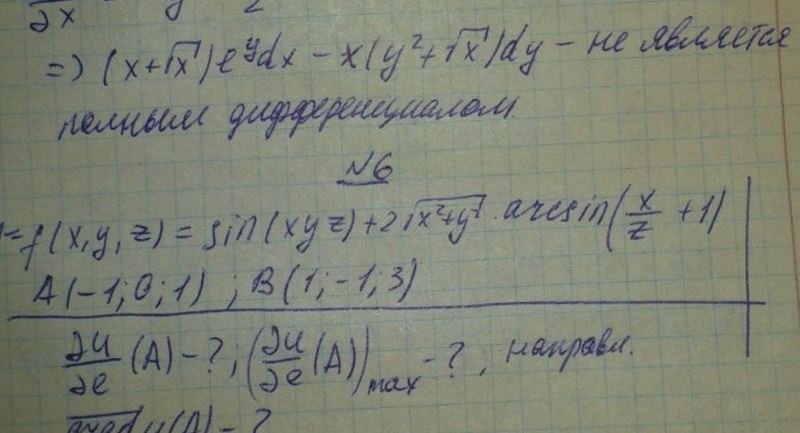 ∂x 2
=> (x+√x)e^y dx - x(y²+√x)dy - не является
полным дифференциалом.
№6
u=f(x,y,z) = sin(xyz)+2√x²+y² · arcsin(x/z +1)
A(-1;0;1) ; B(1;-1;3)
∂u/∂e (A) - ?; (∂u/∂e (A))max - ?, направл.
grad u(A) - ?